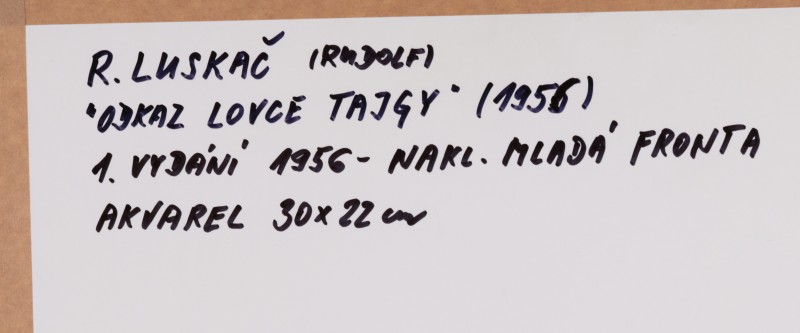 R. LUSKAČ (RUDOLF)
"ODKAZ LOVCE TAJGY" (1956)
1. VYDÁNÍ 1956 - NAKL. MLADÁ FRONTA
AKVAREL 30x22 cm